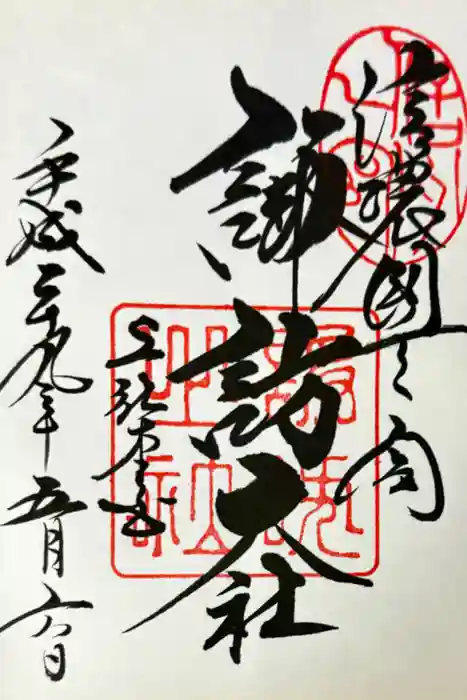 信濃國一之宮
諏訪大社
上社本宮
平成二十九年五月六日